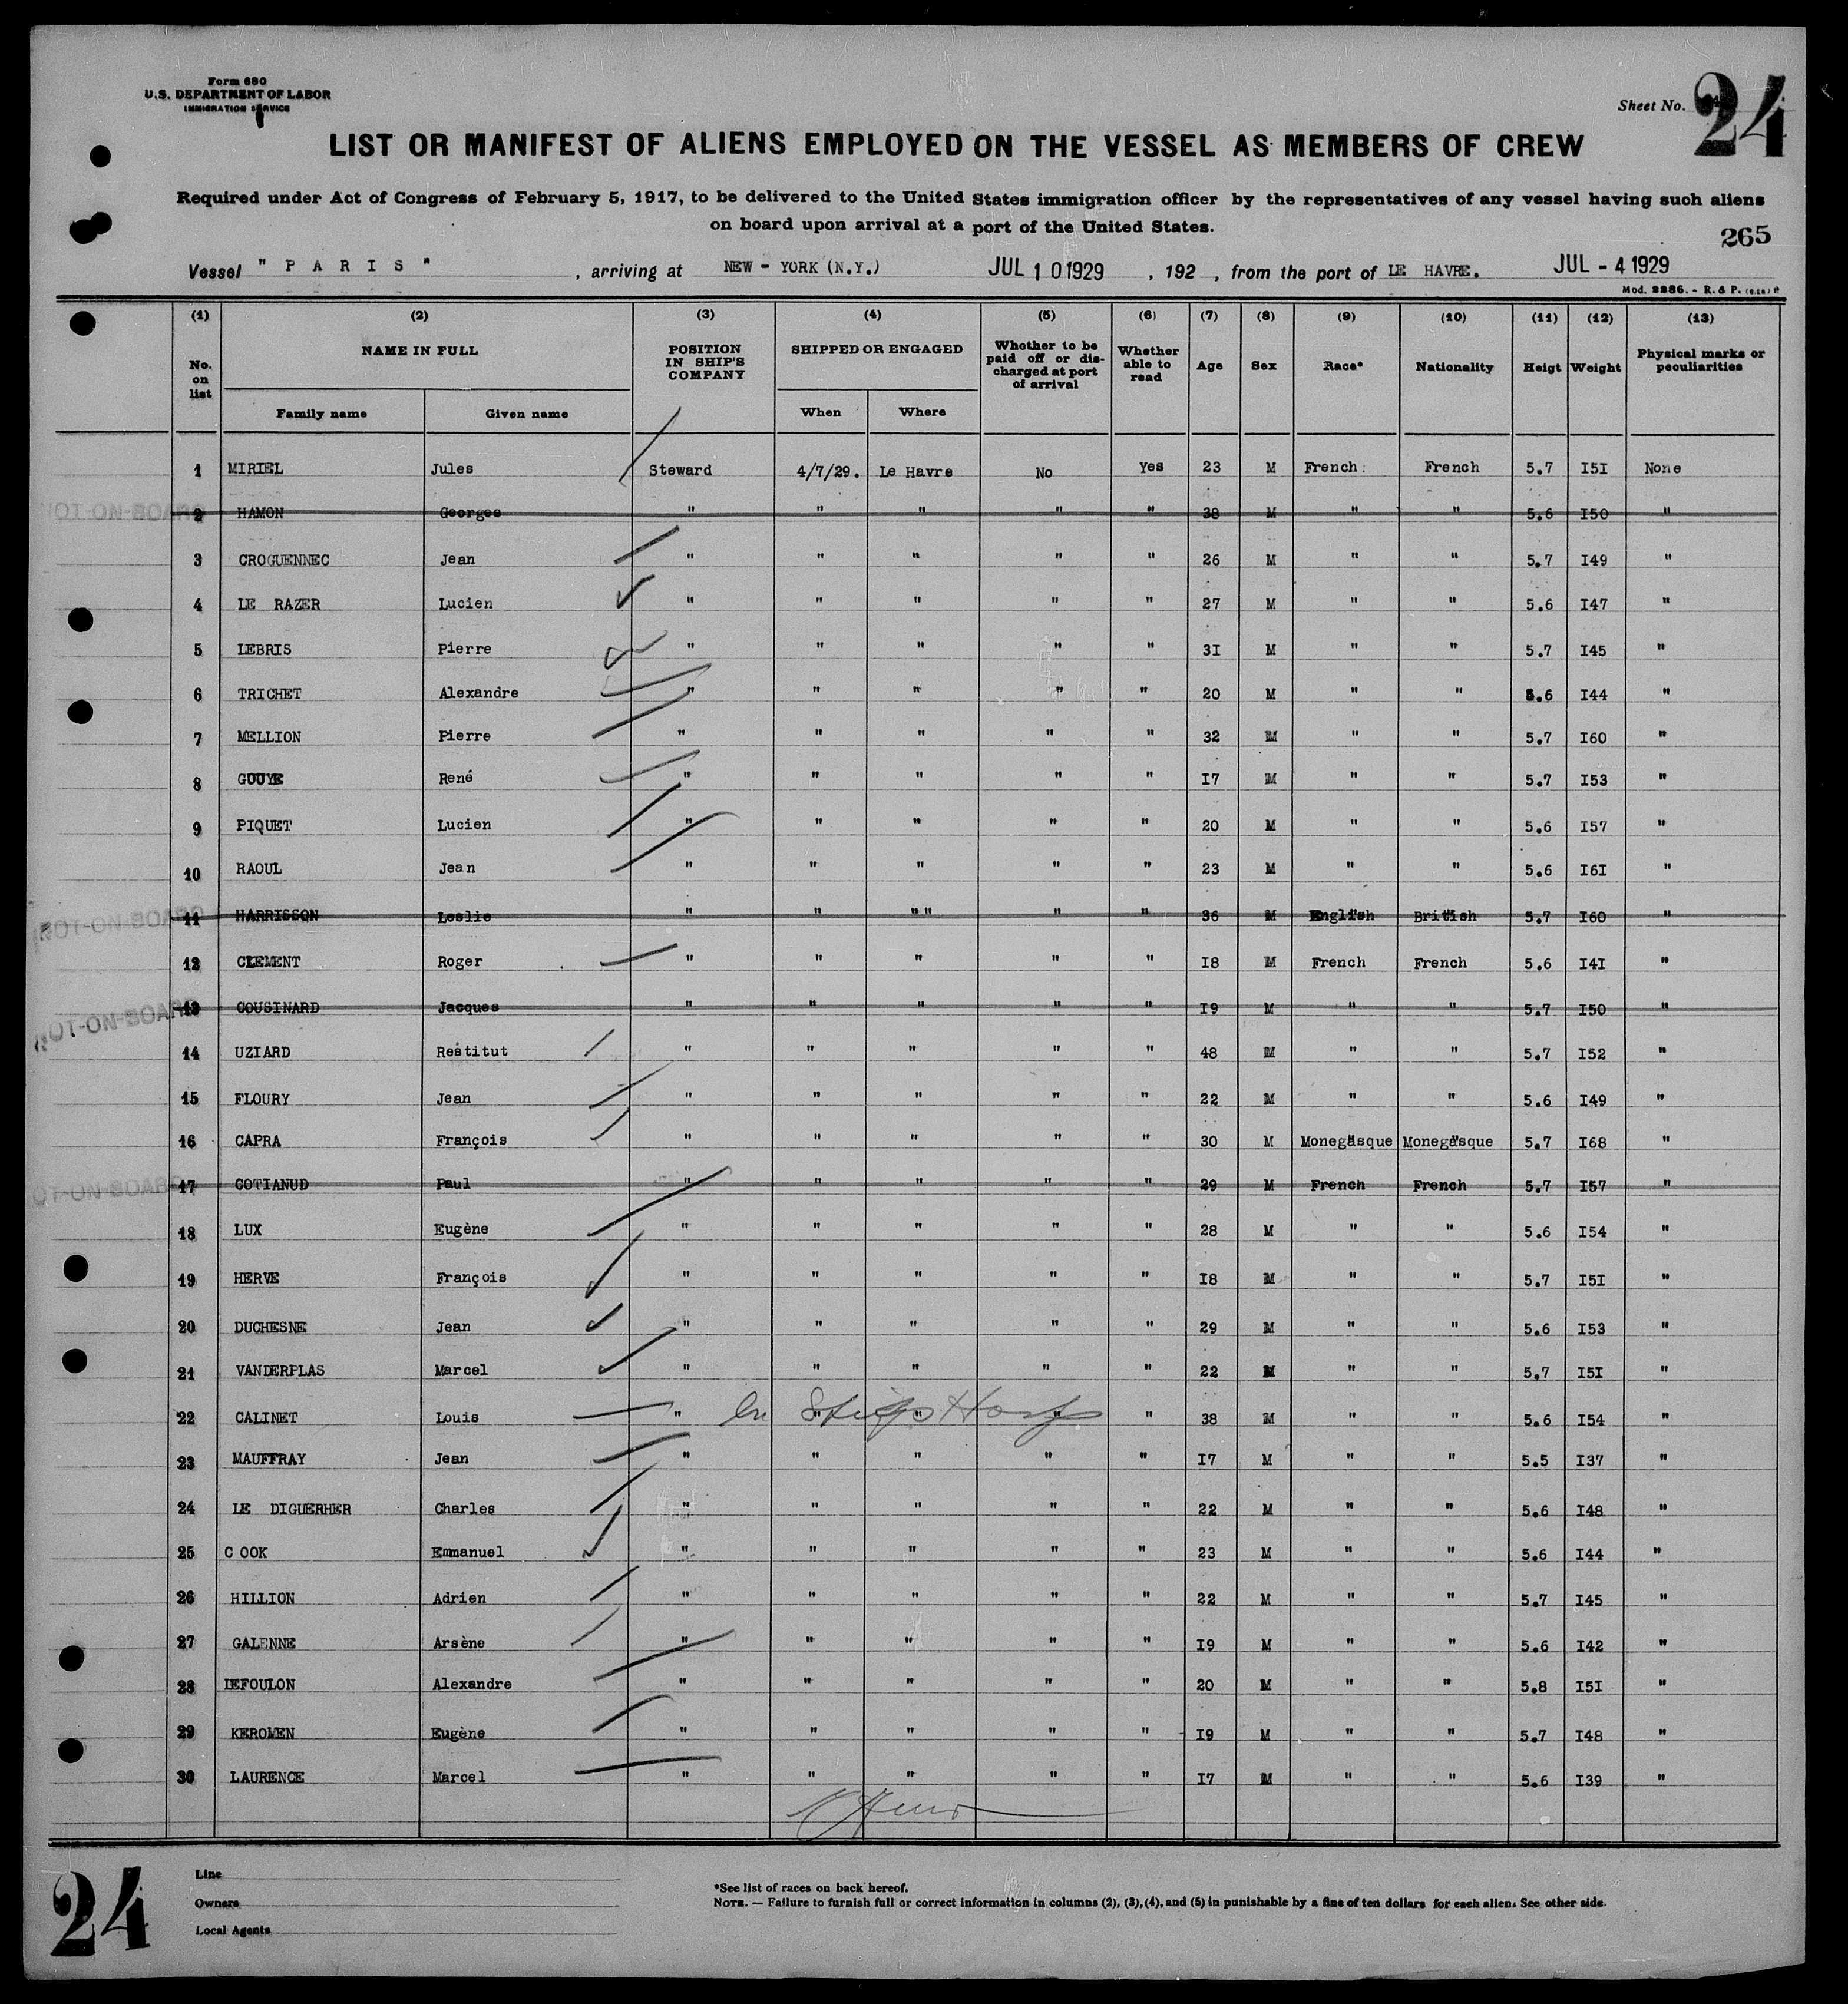 Form 680
U.S. DEPARTMENT OF LABOR
IMMIGRATION SERVICE
Sheet No. 24
LIST OR MANIFEST OF ALIENS EMPLOYED ON THE VESSEL AS MEMBERS OF CREW
Required under Act of Congress of February 5, 1917, to be delivered to the United States immigration officer by the representatives of any vessel having such aliens
on board upon arrival at a port of the United States.
265
Vessel "PARIS", arriving at NEW - YORK (N.Y.) JUL 10 1929, 192 , from the port of LE HAVRE. JUL - 4 1929
Mod. 2286. - R. & P.
(1) (2) (3) (4) (5) (6) (7) (8) (9) (10) (11) (12) (13)
No. on list NAME IN FULL POSITION IN SHIP'S COMPANY SHIPPED OR ENGAGED Whother to be paid off or discharged at port of arrival Whether able to read Age Sex Race* Nationality Heigt Weight Physical marks or peculiarities
Family name Given name When Where
1 MIRIEL Jules Steward 4/7/29. Le Havre No Yes 23 M French French 5.7 I5I None
NOT-ON-BOARD 2 HAMON Georges " " " " " 38 M " " 5.6 I50 "
3 CROGUENNEC Jean " " " " " 26 M " " 5.7 I49 "
4 LE RAZER Lucien " " " " " 27 M " " 5.6 I47 "
5 LEBRIS Pierre " " " " " 3I M " " 5.7 I45 "
6 TRICHET Alexandre " " " " " 20 M " " 5.6 I44 "
7 MELLION Pierre " " " " " 32 M " " 5.7 I60 "
8 GOUYE René " " " " " I7 M " " 5.7 I53 "
9 PIQUET Lucien " " " " " 20 M " " 5.6 I57 "
10 RAOUL Jean " " " " " 23 M " " 5.6 I6I "
NOT-ON-BOARD 11 HARRISSON Leslie " " " " " " 36 M English British 5.7 I60 "
12 CLEMENT Roger " " " " " I8 M French French 5.6 I4I "
NOT-ON-BOARD 13 COUSINARD Jacques " " " " " I9 M " " 5.7 I50 "
14 UZIARD Restitut " " " " " 48 M " " 5.7 I52 "
15 FLOURY Jean " " " " " 22 M " " 5.6 I49 "
16 CAPRA François " " " " " 30 M Monegasque Monegasque 5.7 I68 "
NOT-ON-BOARD 17 COTIANUD Paul " " " " " 29 M French French 5.7 I57 "
18 LUX Eugène " " " " " 28 M " " 5.6 I54 "
19 HERVE François " " " " " I8 M " " 5.7 I5I "
20 DUCHESNE Jean " " " " " 29 M " " 5.6 I53 "
21 VANDERPLAS Marcel " " " " " 22 M " " 5.7 I5I "
22 CALINET Louis " In Ships Hosp " " " " 38 M " " 5.6 I54 "
23 MAUFFRAY Jean " " " " " I7 M " " 5.5 I37 "
24 LE DIGUERHER Charles " " " " " 22 M " " 5.6 I48 "
25 C OOK Emmanuel " " " " " 23 M " " 5.6 I44 "
26 HILLION Adrien " " " " " 22 M " " 5.7 I45 "
27 GALENNE Arsène " " " " " I9 M " " 5.6 I42 "
28 LEFOULON Alexandre " " " " " 20 M " " 5.8 I5I "
29 KEROMEN Eugène " " " " " I9 M " " 5.7 I48 "
30 LAURENCE Marcel " " " " " I7 M " " 5.6 I39 "
24
Line
Owners
Local Agents
*See list of races on back hereof.
NOTE. — Failure to furnish full or correct information in columns (2), (3), (4), and (5) in punishable by a fine of ten dollars for each alien. See other side.